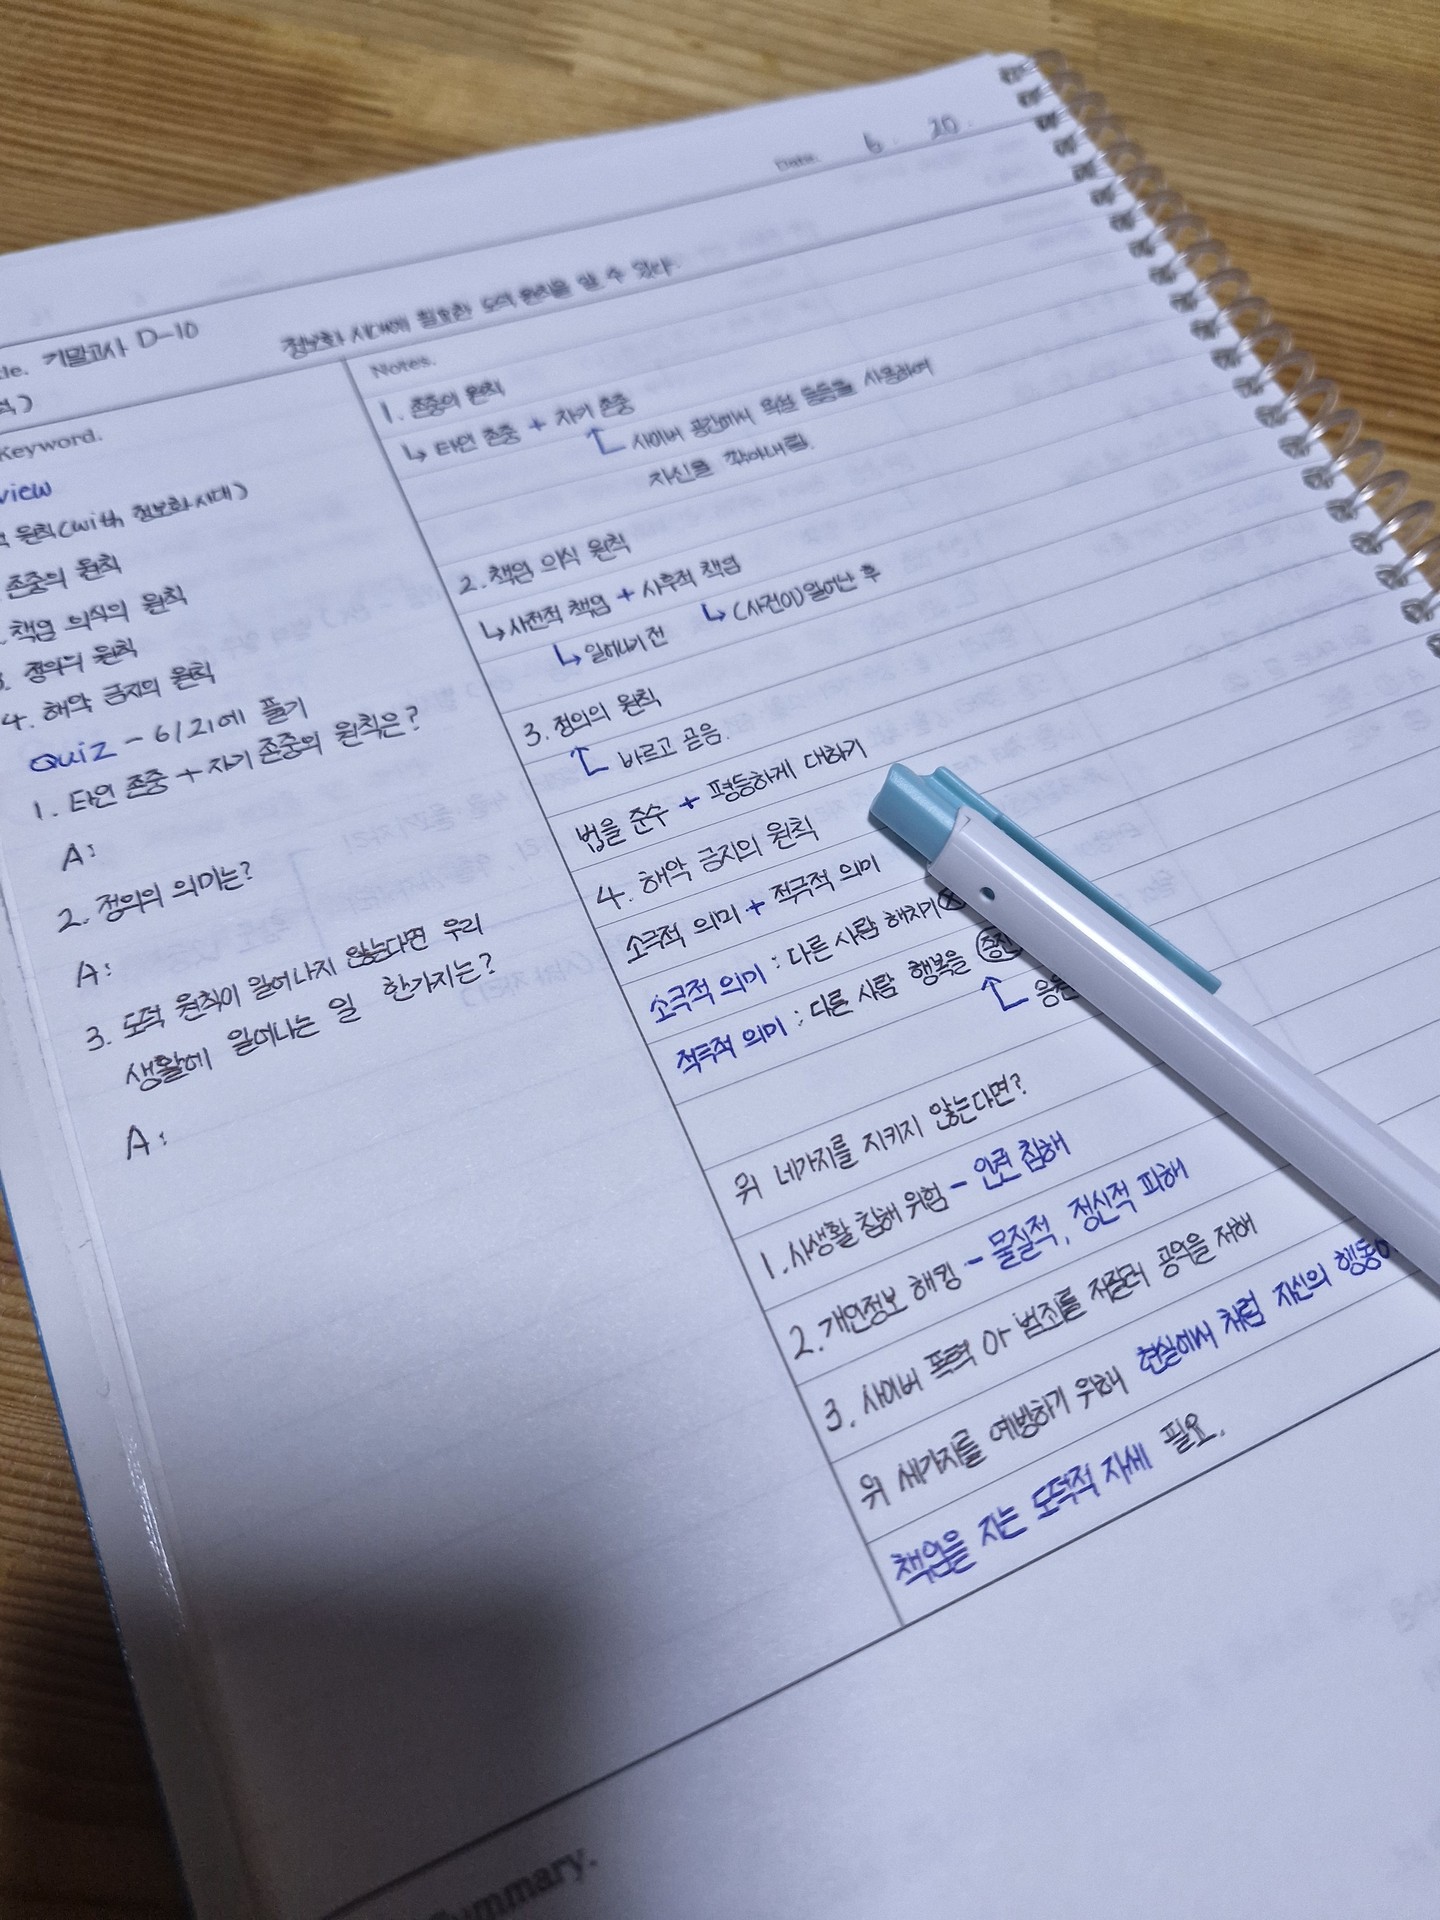 Date. 6. 20.
기말고사 D-10
정보화 시대에 필요한 도덕 원칙을 알 수 있다.
Keyword.
view
원칙(with 정보화시대)
존중의 원칙
책임 의식의 원칙
3. 정의의 원칙
4. 해악 금지의 원칙
Quiz - 6/21에 풀기
1. 타인 존중 + 자기 존중의 원칙은?
A:
2. 정의의 의미는?
A:
3. 도덕 원칙이 일어나지 않는다면 우리
생활에 일어나는 일 한가지는?
A:
Notes.
1. 존중의 원칙
↳ 타인 존중 + 자기 존중
사이버 공간에서 욕설 등등을 사용하여
자신을 깎아내림.
2. 책임 의식 원칙
↳ 사전적 책임 + 사후적 책임
↳ 일어나기 전
↳ (사건이) 일어난 후
3. 정의의 원칙
바르고 곧음.
법을 준수 + 평등하게 대하기
4. 해악 금지의 원칙
소극적 의미 + 적극적 의미
소극적 의미 : 다른 사람 해치기 X
적극적 의미 : 다른 사람 행복을
위 네가지를 지키지 않는다면?
1. 사생활 침해 위험 - 인권 침해
2. 개인정보 해킹 - 물질적, 정신적 피해
3. 사이버 폭력 or 범죄를 저질러 공익을 저해
위 세가지를 예방하기 위해 현실에서 처럼 자신의
책임을 지는 도덕적 자세 필요.
Summary.